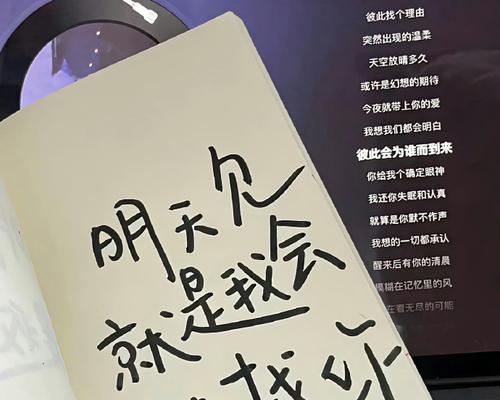 彼此找个理由
突然出现的温柔
天空放晴多久
或许是幻想的期待
今夜就带上你的爱
我想我们都会明白
彼此会为谁而到来
你给我个确定眼神
我还你失眠和认真
就算是你默不作声
我想的一切都承认
醒来后有你的清晨
模糊在记忆里的风
在看无尽的可能
明天见
就是我会
找你